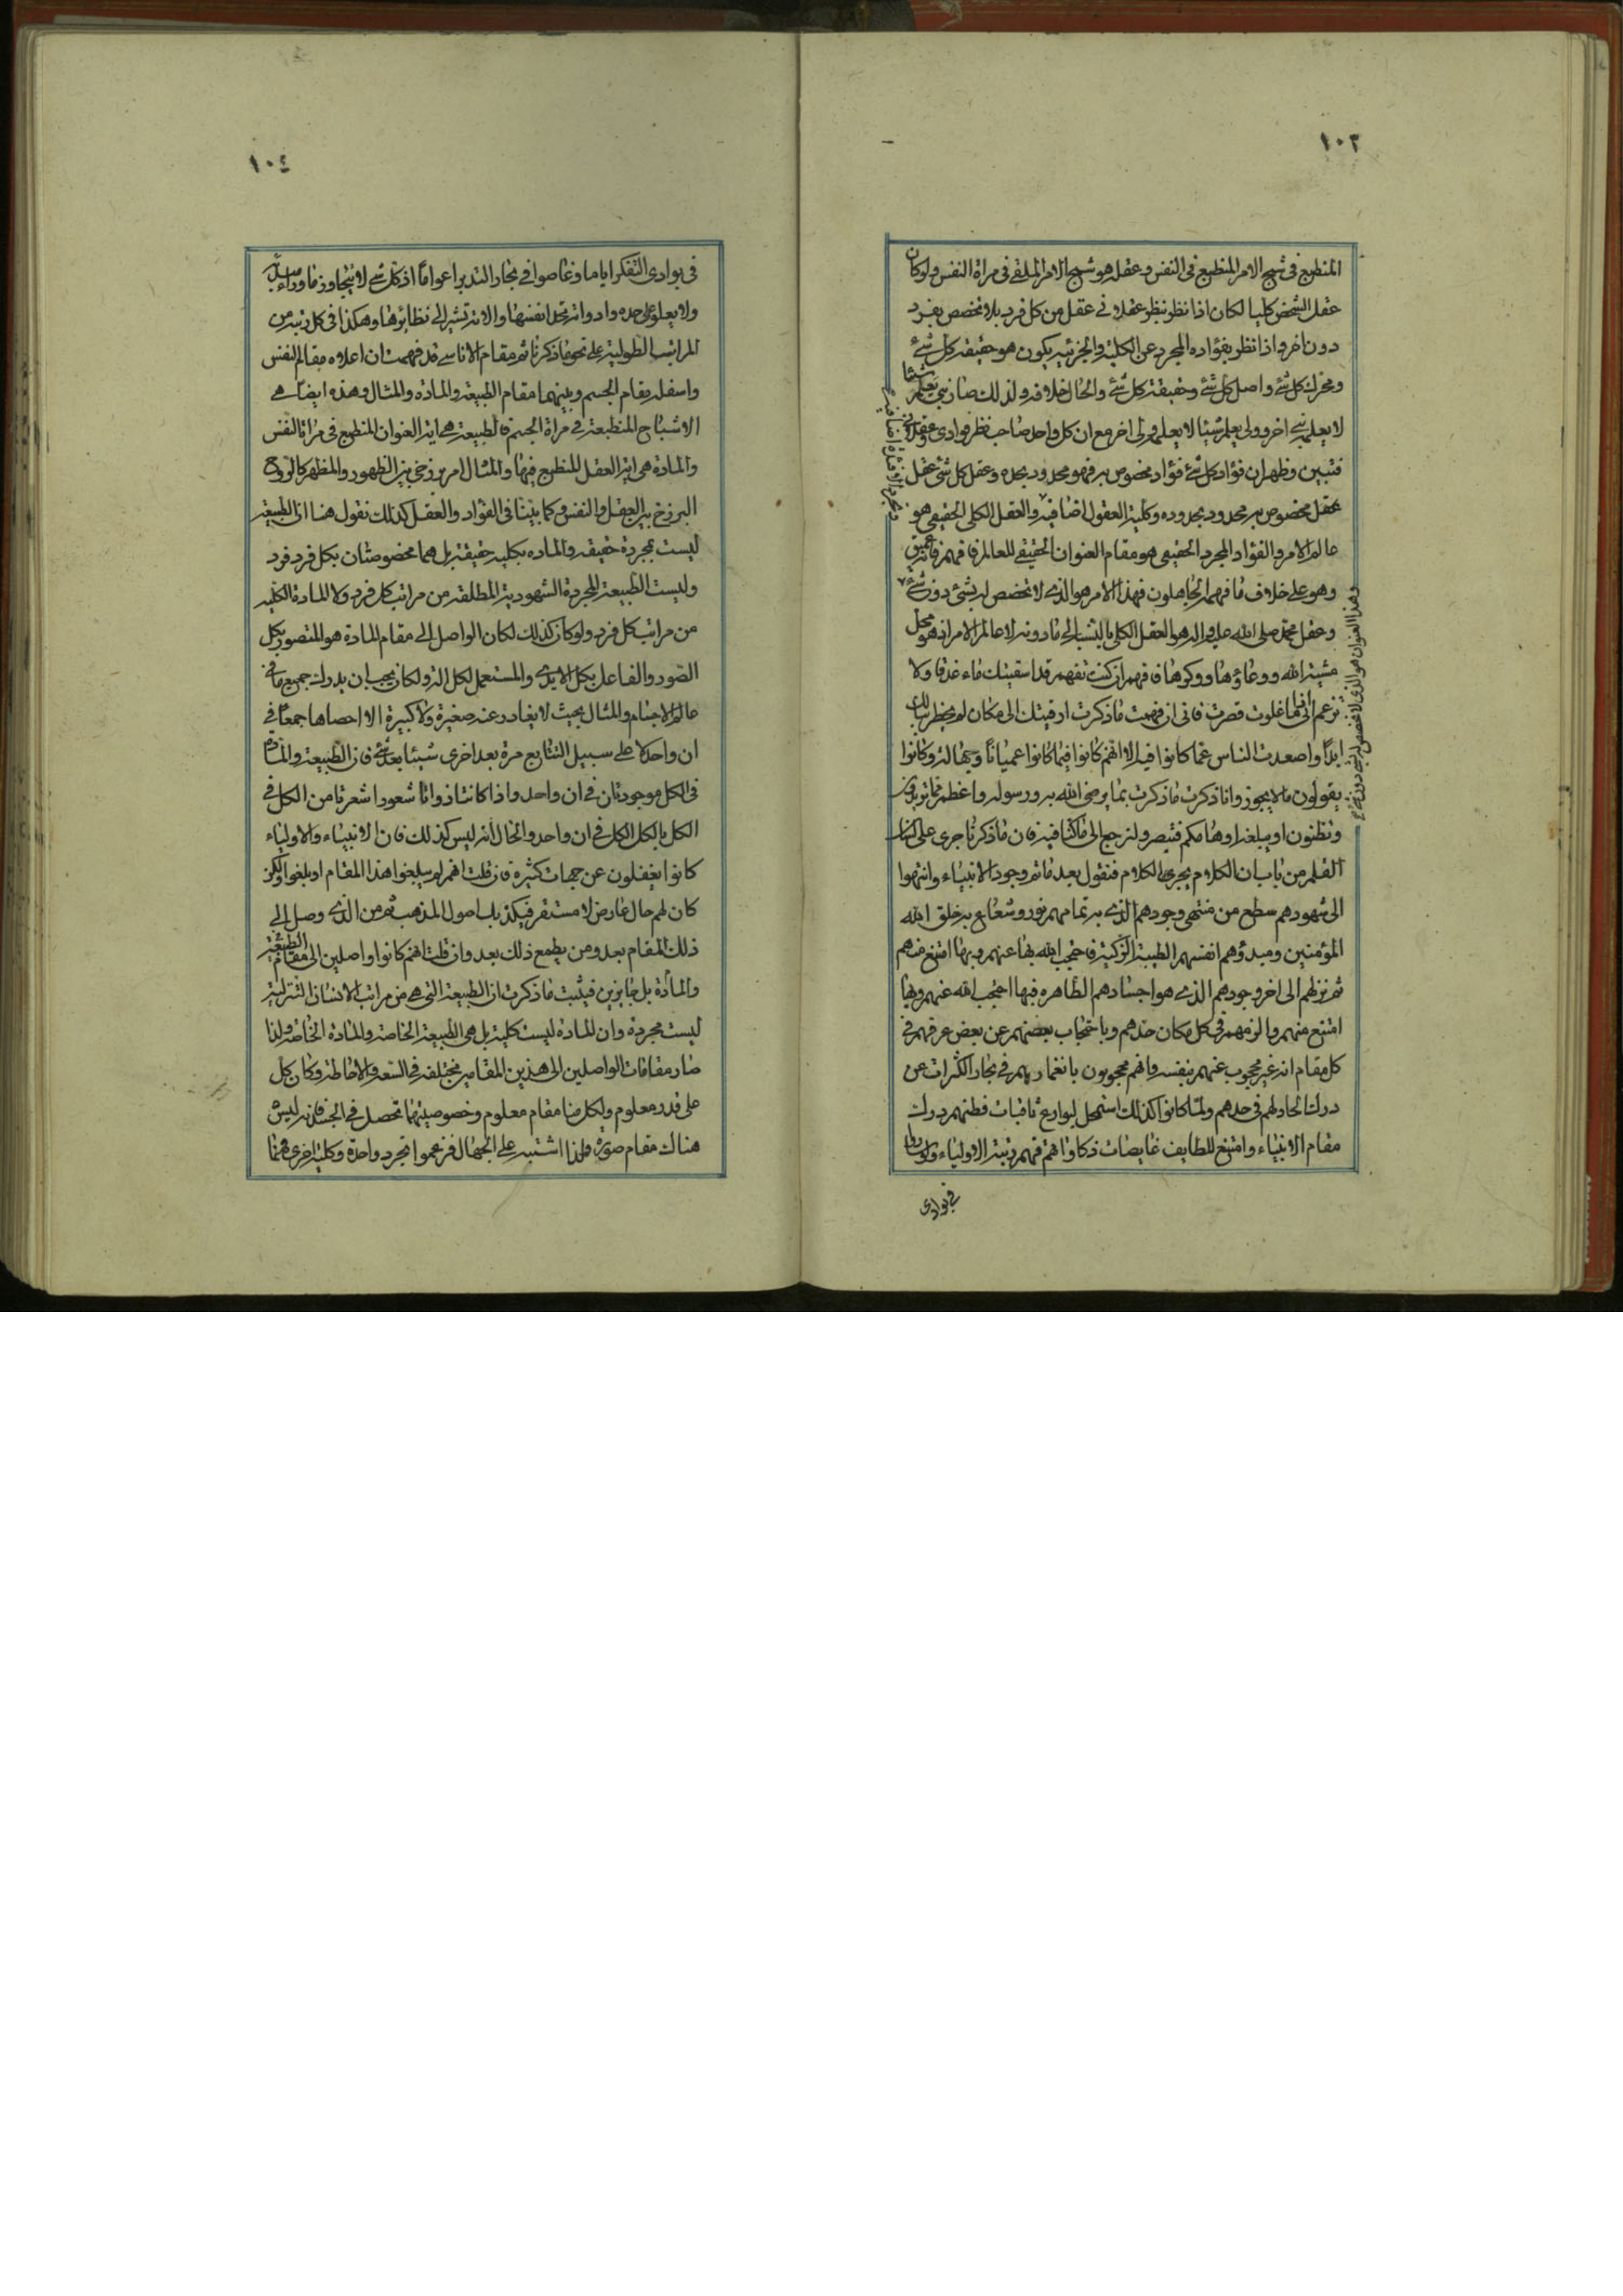 ١٠٣
المنطبع فی شبح الامر المنطبع فی النفس وعقله هو شبح الامر الملقی فی مرآة النفس ولو كان
عقل الشخص كليا لكان اذا نظر بنظر عقلانی عقل من كل فرد بلا تخصص بفرد
دون اخر واذا نظر بفؤاده المجرد عن الكلية والجزئية يكون هو حقيقة كل شیء
ومحرك كل شیء واصل كل شیء وحقيقة كل شیء والحال خلافه ولذلك صار نبی يعلم شيئا
لا يعلمه نبی اخر وولی يعلم شيئا لا يعلمه ولی اخر مع ان كل واحد صاحب نظر فؤادی وعقلانی
فتبين وظهر ان فؤاد كل شیء فؤاد مخصوص به فهو محدود بحده وعقل كل شیء عقل
عقل مخصوص به محدود بحدوده وكلية العقول اضافية والعقل الكلی الحقيقی هو
عالم الامر والفؤاد المجرد الحقيقی هو مقام العنوان الحقيقی للعالم فافهم فانه عميق
وهو علی خلاف ما فهمه الجاهلون فهذا الامر هو الذی لا تخصص له بشیء دون شیء
وعقل محمد صلی الله عليه واله هو العقل الكلی بالنسبة الی ما دونه لا عالم الامر انه هو محل
مشية الله ووعاؤها ووكرها فافهم ان كنت تفهم قد اسقيتك ماء غدقا ولا
تزعم انی انما غلوت قصرت فانی ان فهمت ما ذكرت ارقيتك الی مكان لم يخطر ببالك
ابدا واصعدت الناس عما كانوا فيه الا انهم كانوا فيما كانوا عميانا وجهالة وكانوا
يقولون ما لا يجوز وانا ذكرت ما ذكرت بما يرضی الله به ورسوله واعظم مما تريدون
وتظنون او يبلغه اوهامكم فتبصر ولنرجع الی ما كنا فيه فان ما ذكرنا جری علی لسان
القلم من باب ان الكلام يجر الكلام فنقول بعد ما تم وجود الانبياء وانتهوا
الی شهودهم سطع من منتهی وجودهم الذی به تمامهم نور وشعاع به خلق الله
المؤمنين ومبدؤهم انفسهم الطيبة الزكية فاحتجب الله بها عنهم وبها امتنع منهم
ثم نزلهم الی اخر وجودهم الذی هو اجسادهم الطاهره فبها احتجب الله عنهم وبها
امتنع منهم والزمهم فی كل مكان حدهم وباحتجاب بعضهم عن بعض عرفهم فی
كل مقام انه غير محجوب عنهم بنفسه وانهم محجوبون بانغمارهم فی بحار الكثرات عن
درك اتحاد لهم فی حدهم ولما كانوا كذلك استحال لبوارع ثاقبات فطنهم درك
مقام الانبياء وامتنع للطايف غايصات ذكاواتهم فهم رتبة الاولياء ولو ساروا
فی بوادی
وهذا العنوان هو الذی لا تخصص له بشیء دون شیء
١٠٤
فی بوادی التفكر اياما وغاصوا فی بحار التدبر اعواما اذ كل شیء لا يتجاوز ما وراء مبدئه
ولا يعلو علی حده وادواته تحد انفسها والاته تشير الی نظائرها وهكذا فی كل رتبة من
المراتب الطولية علی نحو ما ذكرنا ثم مقام الاناسی قد فهمت ان اعلاه مقام النفس
واسفله مقام الجسم وبينهما مقام الطبيعة والمادة والمثال وهذه ايضا هی
الاشباح المنطبعة فی مرآة الجسم فالطبيعة هی اية العنوان المنطبع فی مرآة النفس
والمادة هی اية العقل المنطبع فيها والمثال امر برزخی بين الظهور والمظهر كالروح
البرزخ بين العقل والنفس وكما بينا فی الفؤاد والعقل كذلك نقول هنا ان الطبيعة
ليست بمجردة حقيقه والماده بكليه حقيقة بل هما مخصوصتان بكل فرد فرد
وليست الطبيعة المجردة الشهودية المطلقة من مراتب كل فرد ولا المادة الكلية
من مراتب كل فرد ولو كان كذلك لكان الواصل الی مقام المادة هو المتصور بكل
الصور والفاعل بكل الايدی والمستعمل لكل الة ولكان يجب ان يدرك جميع ما فی
عالم الاجسام والمثال بحيث لا يغادر عنه صغيرة ولا كبيرة الا احصاها جمعا فی
ان واحد لا علی سبيل التتابع مرة بعد اخری شيئا بعد شیء فان الطبيعة والمادة
فی الكل موجودتان فی ان واحد واذا كانتا ذواتا شعور اشعرتا من الكل فی
الكل بالكل الكل فی ان واحد والحال انه ليس كذلك فان الانبياء والاولياء
كانوا يغفلون عن جهات كثيرة فان قلت انهم لم يبلغوا هذا المقام او بلغوا ولكن
كان لهم حال عارض لا مستقر فيكذبك اصول المذهب ثم من الذی وصل الی
ذلك المقام بعد ومن يطمع ذلك بعد وان قلت انهم كانوا واصلين الی مقام الطبيعة
والمادة بل جايزين فيثبت ما ذكرت ان الطبيعة التی هی من مراتب الانسان التنزلية
ليست مجردة وان المادة ليست كلية بل هی الطبيعة الخاصة والمادة الخاصة ولذا
صار مقامات الواصلين الی هذين المقامين مختلفة فی السعة والاحاطة وكان كل
علی قدر معلوم ولكل منا مقام معلوم وخصوصيتهما تحصل فی الجسد فانه ليس
هناك مقام صورة ولذا اشتبه علی الجهال فزعموا تجرد واحدة وكلية اخری فمنا